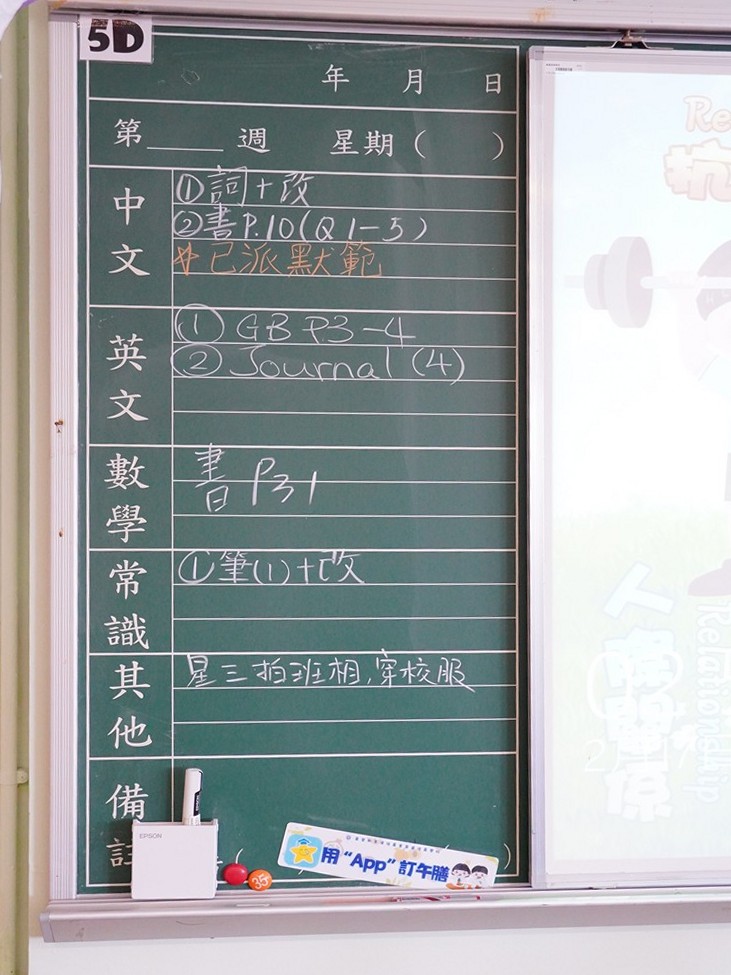 5D
年 月 日
第____週 星期( )
中文
①詞+改
②書P.10(Q1-5)
*已派默範
英文
① GB P3-4
② Journal (4)
數學
書 P31
常識
①筆(1)+改
其他
星三拍班相,穿校服
備註
EPSON
35
用“App”訂午膳
Re
抗
人際關係
Relationship